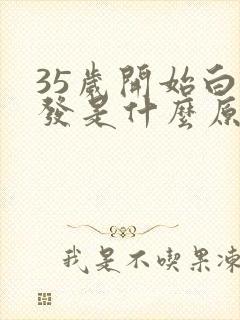 35歲開始白
發是什麼原
我是不喫果凍